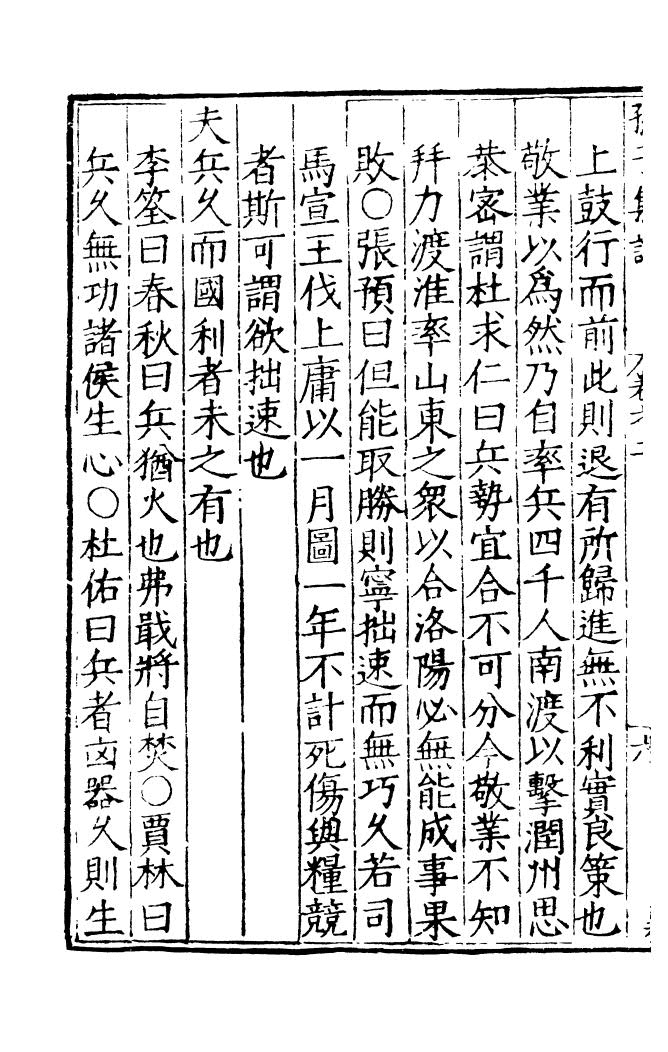 上鼓行而前此則退有所歸進無不利實良策也
敬業以爲然乃自率兵四千人南渡以擊潤州思
恭密謂杜求仁曰兵勢宜合不可分今敬業不知
幷力渡淮率山東之衆以合洛陽必無能成事果
敗○張預曰但能取勝則寧拙速而無巧久若司
馬宣王伐上庸以一月圖一年不計死傷與糧競
者斯可謂欲拙速也
夫兵久而國利者未之有也
李筌曰春秋曰兵猶火也弗戢將自焚○賈林曰
兵久無功諸侯生心○杜佑曰兵者凶器久則生